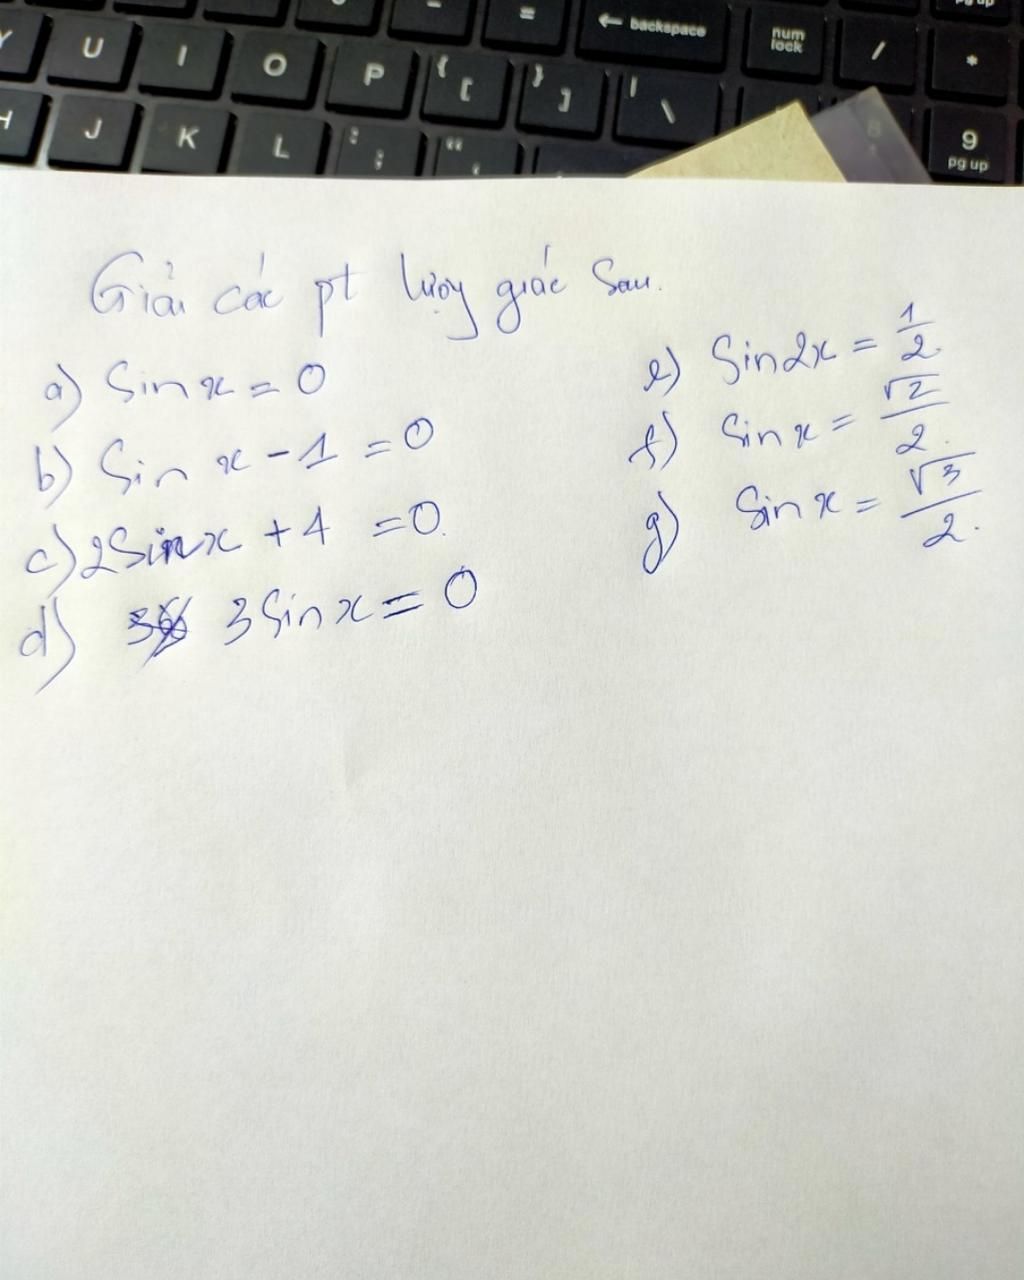 U I O P { [ } ] | \
← backspace num lock / *
H J K L : ; " 9 pg up
Giải các pt lượng giác sau.
a) Sin x = 0
b) Sin x - 1 = 0
c) 2Sin x + 4 = 0.
d) 3Sin x = 0
e) Sin2x = 1/2.
f) Sin x = √2/2.
g) Sin x = √3/2.